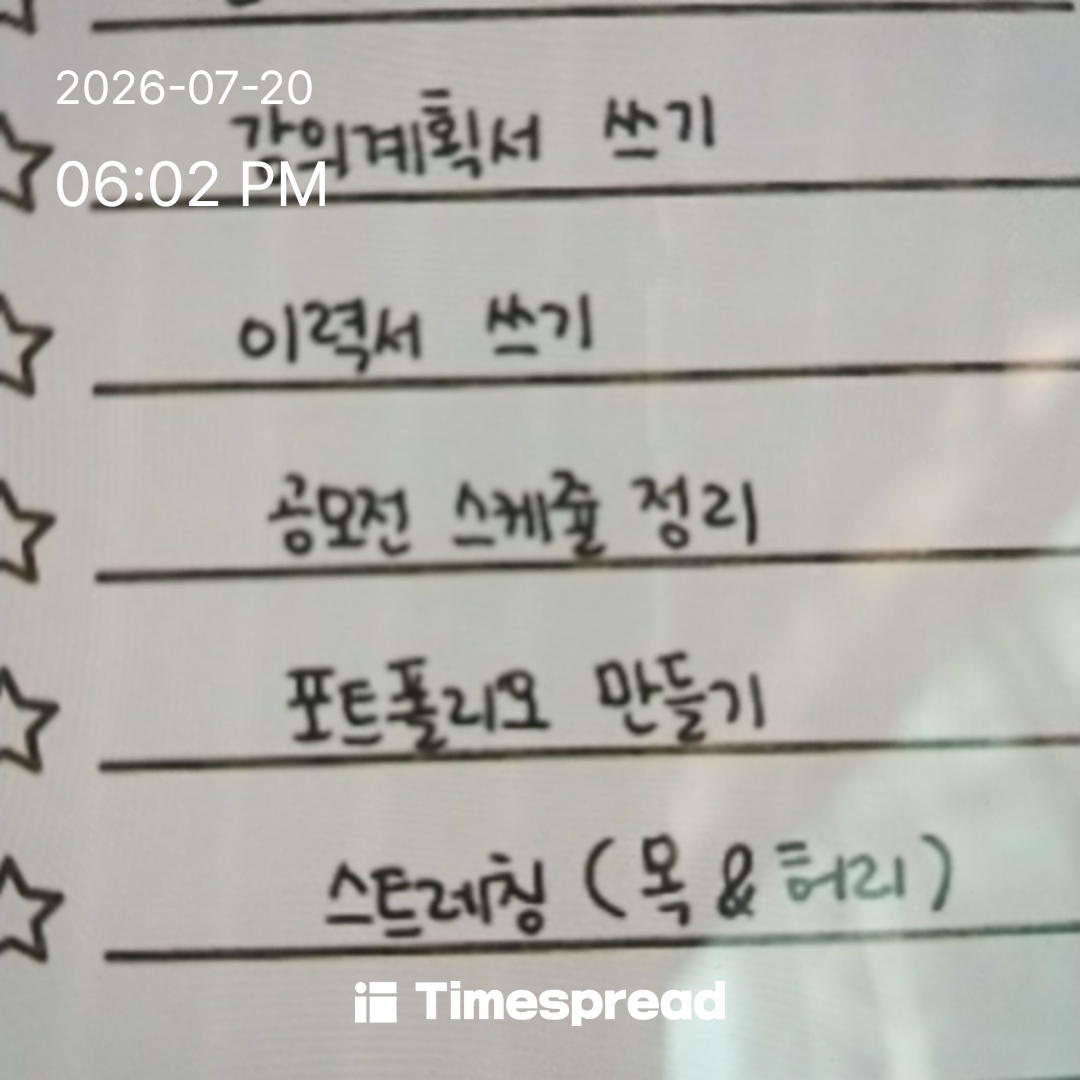 2026-07-20
강의계획서 쓰기
06:02 PM
이력서 쓰기
공모전 스케쥴 정리
포트폴리오 만들기
스트레칭 (목 & 허리)
Timespread